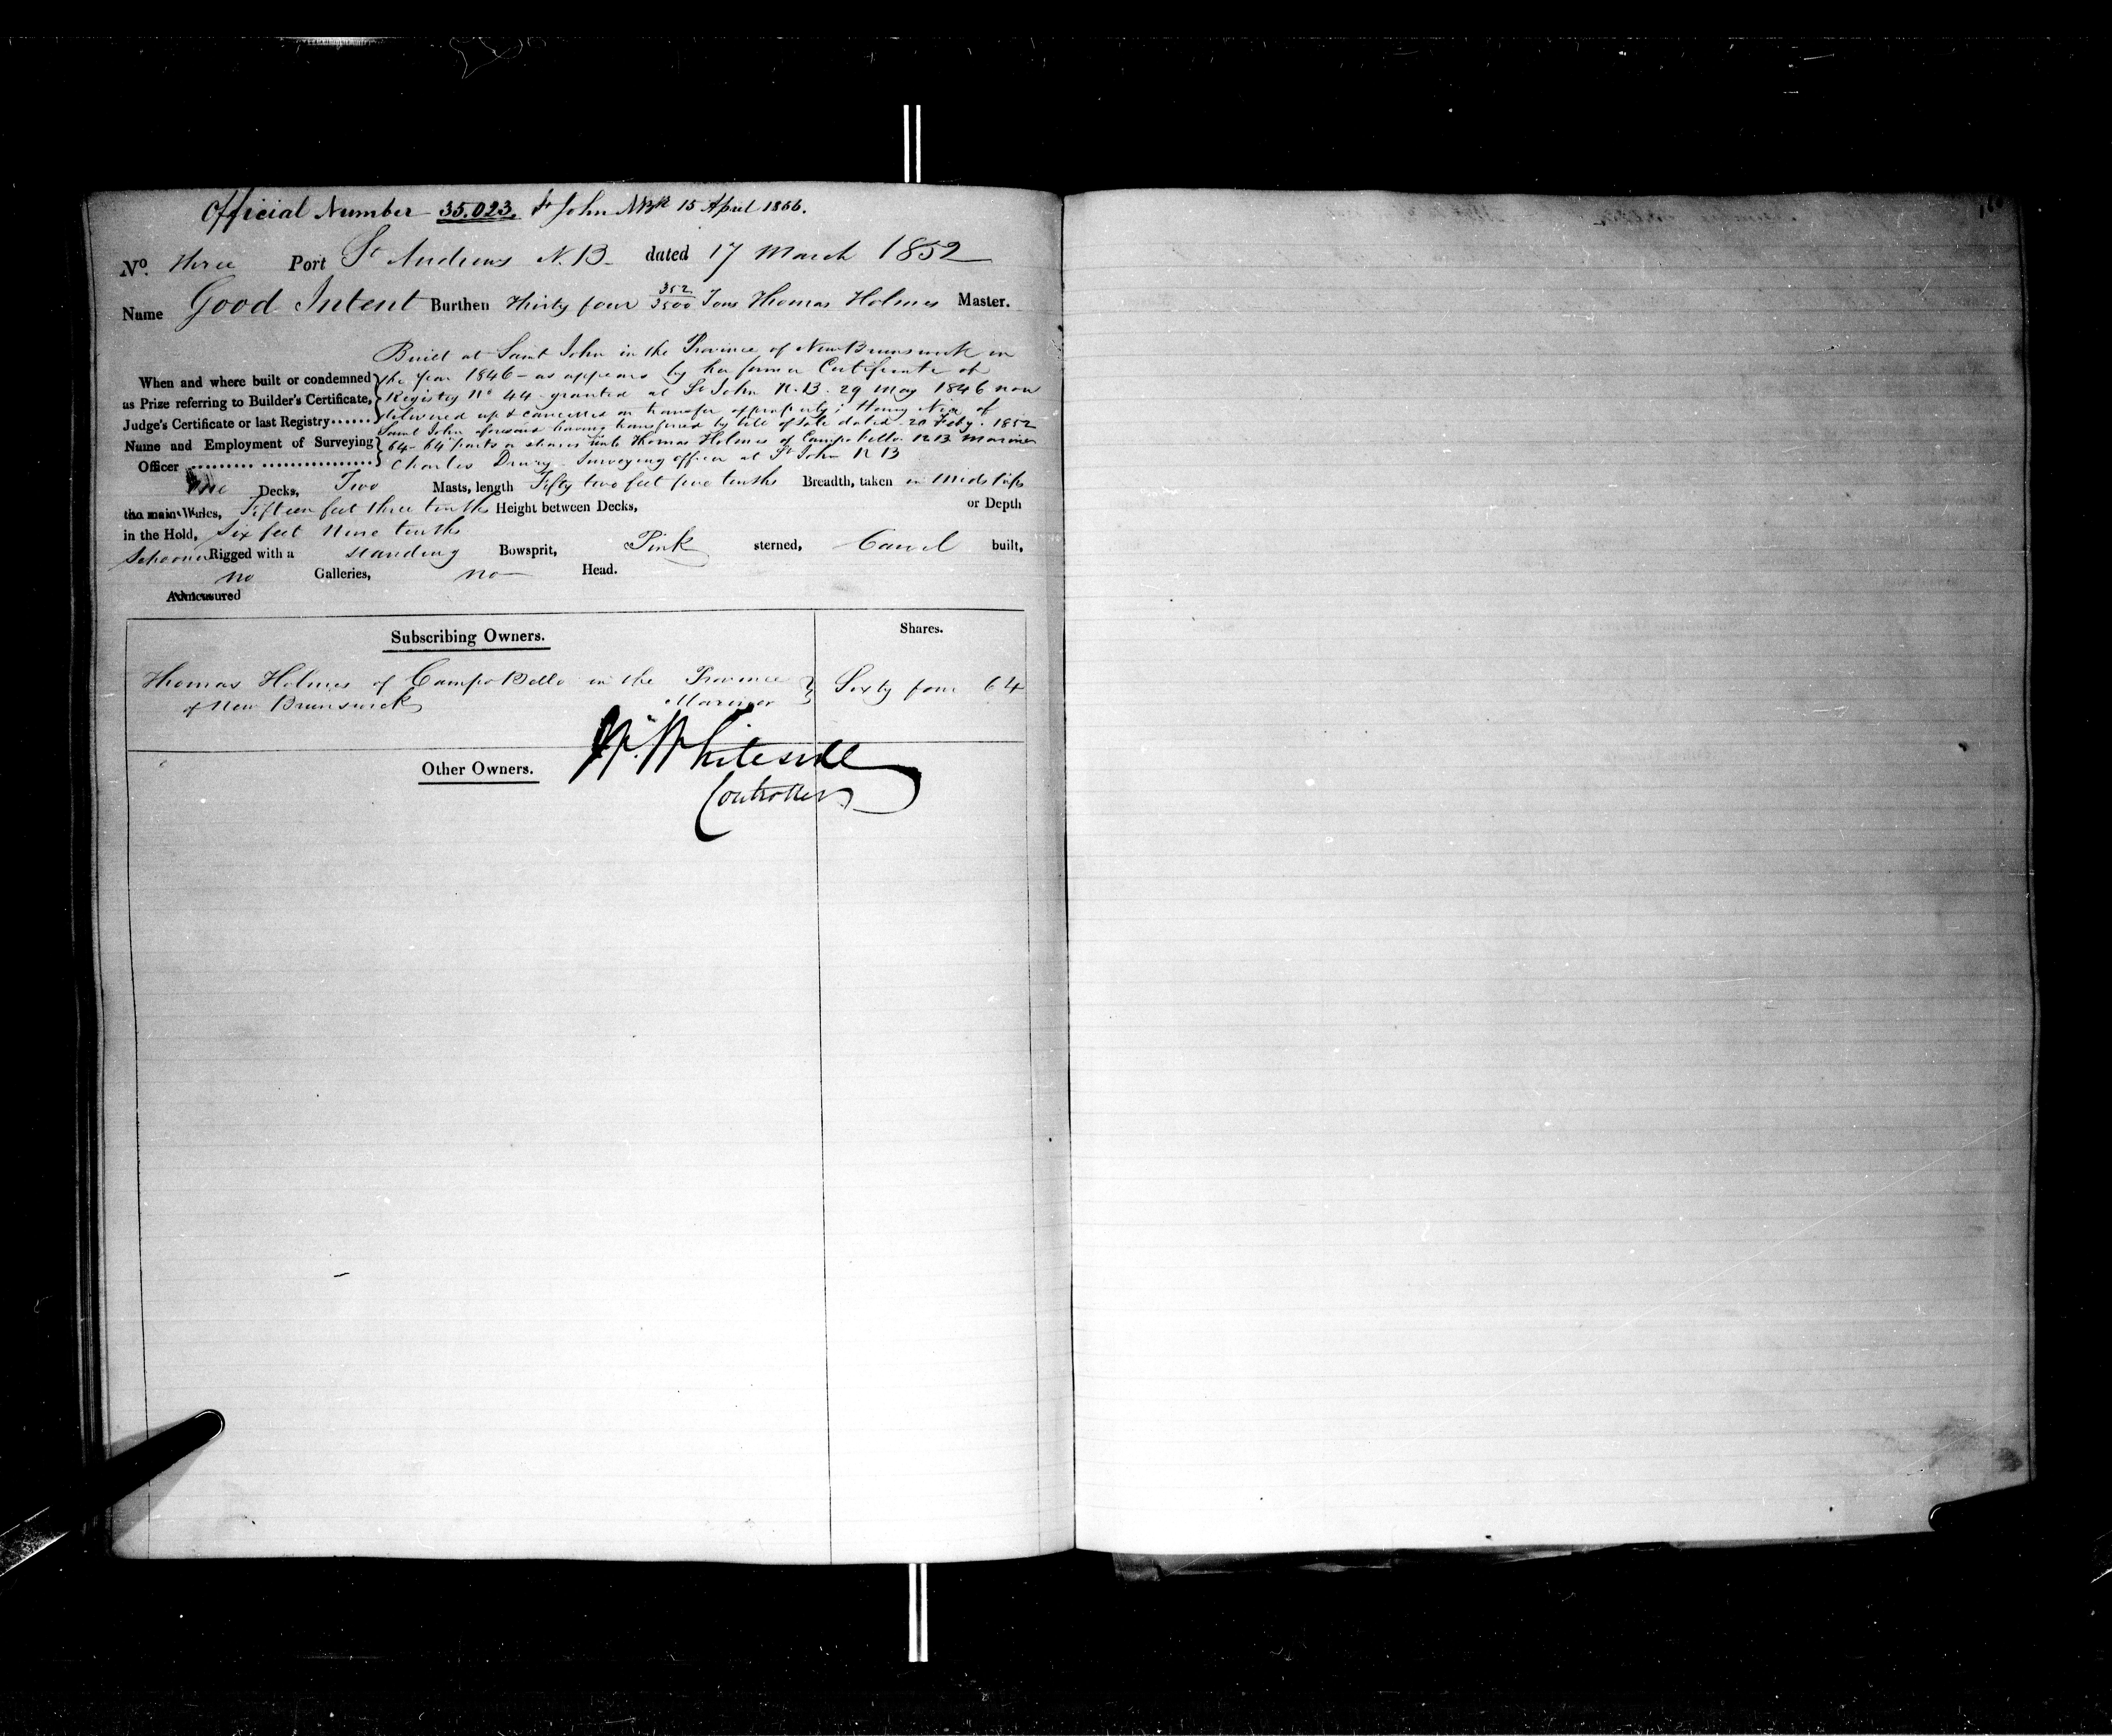 Official Number 35.023. St John NBk 15 April 1866.
No. three Port St Andrews N.B. dated 17 March 1852
Name Good Intent Burthen thirty four 352/3500 Tons Thomas Holmes Master.
Built at Saint John in the Province of New Brunswick in
When and where built or condemned the year 1846 - as appears by her former Certificate of
as Prize referring to Builder's Certificate, Registry No 44 granted at St John N.B. 29 May 1846 now
Judge's Certificate or last Registry...... delivered up & cancelled on transfer of property; Henry Nix of
Saint John aforesaid having transferred by bill of sale dated 20 Feby. 1852
Name and Employment of Surveying 64-64 parts or shares unto Thomas Holmes of Campo Bello N B Mariner
Officer .......... ................ Charles Drury Surveying officer at St John N B
One Decks, Two Masts, length Fifty two feet five tenths Breadth, taken in Midships
the main Wales, Fifteen feet three tenths Height between Decks, or Depth
in the Hold, Six feet Nine tenths
Schooner Rigged with a standing Bowsprit, Pink sterned, Carvel built,
no Galleries, no Head.
Admeasured
Subscribing Owners. Shares.
Thomas Holmes of Campo Bello in the Province Sixty four 64
of New Brunswick Mariner
W. Whiteside
Other Owners.
Controller